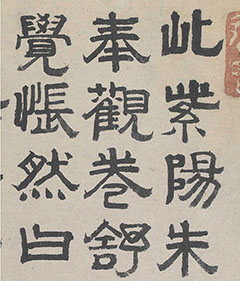 此紫陽朱
奉觀卷舒
覺悵然白